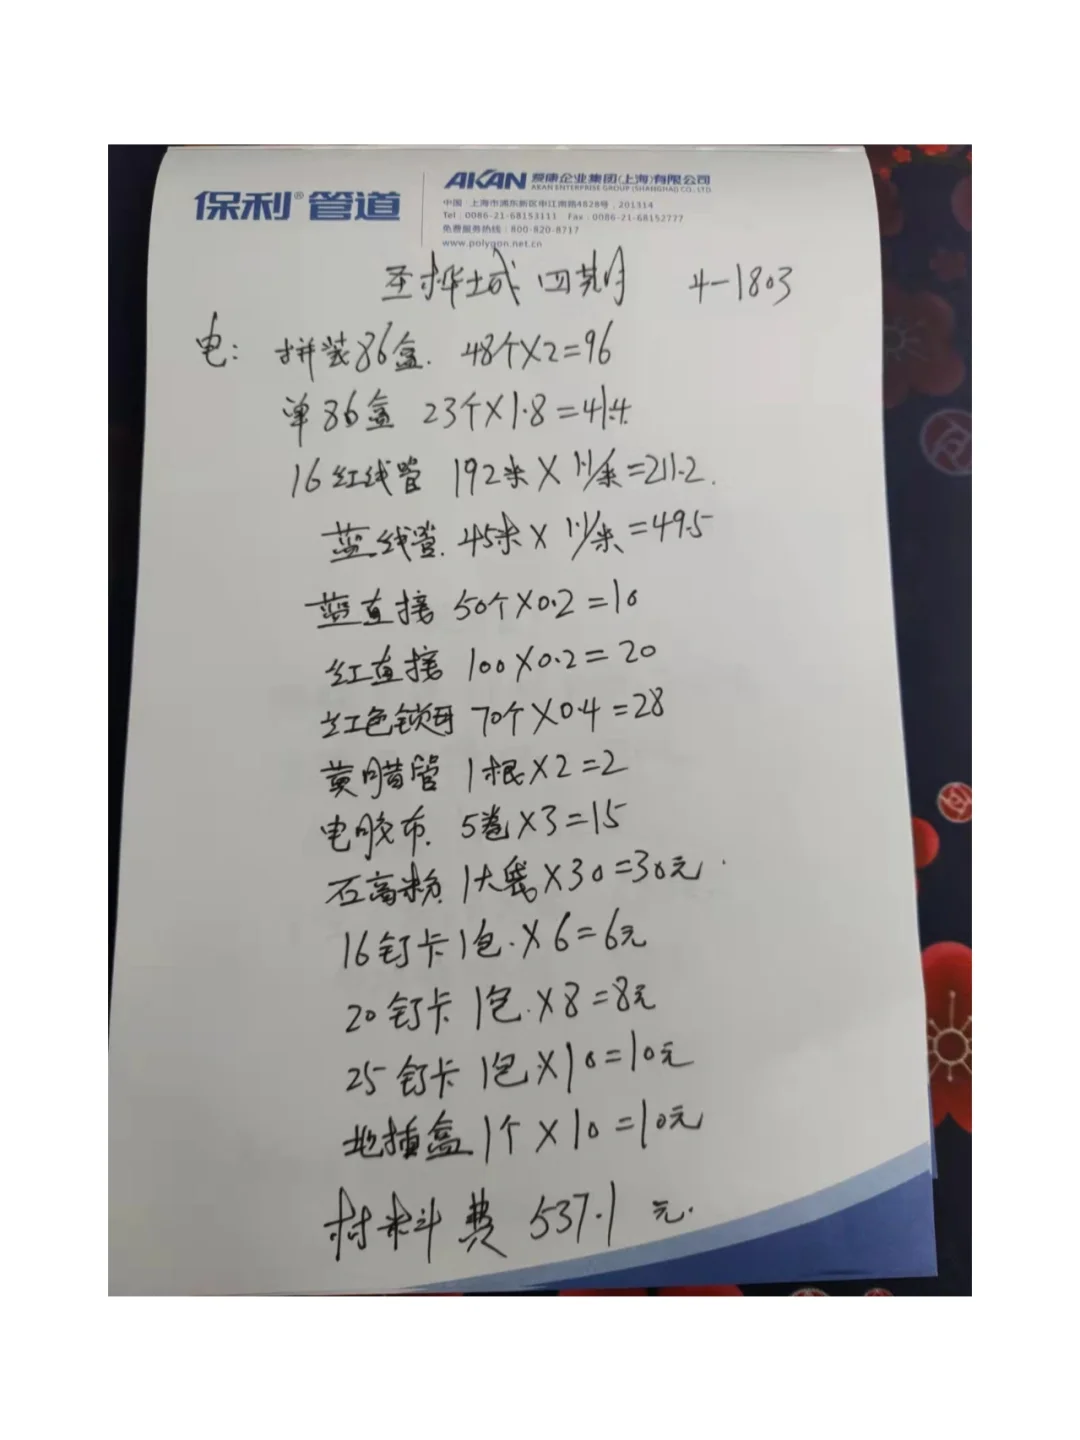 保利®管道
AKAN 爱康企业集团(上海)有限公司
AKAN ENTERPRISE GROUP (SHANGHAI) CO., LTD
中国·上海市浦东新区申江南路4828号, 201314
Tel : 0086-21-68153111 Fax : 0086-21-68152777
免费服务热线: 800-820-8717
www.polygon.net.cn
圣桦城 四期 4-1803
电: 拼装86盒. 48个X2=96
单86盒 23个X1.8=41.4
16红线管 192米X1.1/米=211.2.
蓝线管. 45米X1.1/米=49.5
蓝直接 50个X0.2=10
红直接 100X0.2=20
红色锁母 70个X0.4=28
黄腊管 1根X2=2
电胶布. 5卷X3=15
石高粉 1大袋X30=30元.
16钉卡1包.X6=6元
20钉卡 1包.X8=8元
25钉卡 1包X10=10元
地插盒 1个X10=10元
材料费 537.1元.